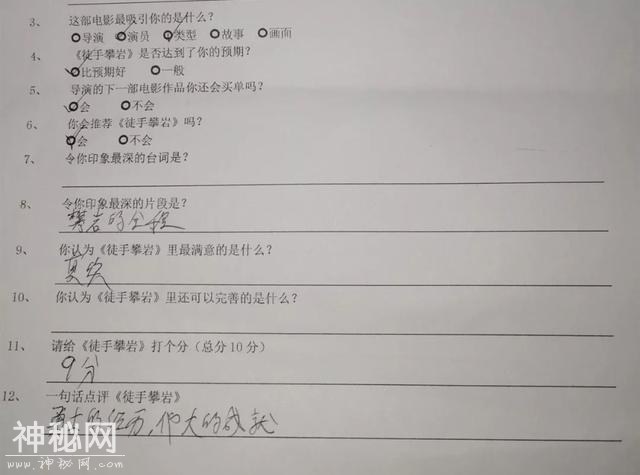 3、 这部电影最吸引你的是什么?
导演 演员 类型 故事 画面
4、 《徒手攀岩》是否达到了你的预期?
比预期好 一般
5、 导演的下一部电影作品你还会买单吗?
会 不会
6、 你会推荐《徒手攀岩》吗?
会 不会
7、 令你印象最深的台词是?
8、 令你印象最深的片段是?
攀岩的全程
9、 你认为《徒手攀岩》里最满意的是什么?
真实
10、 你认为《徒手攀岩》里还可以完善的是什么?
11、 请给《徒手攀岩》打个分(总分10分)
9分
12、 一句话点评《徒手攀岩》
的经历,伟大的成就
神秘网
www.神秘网.com